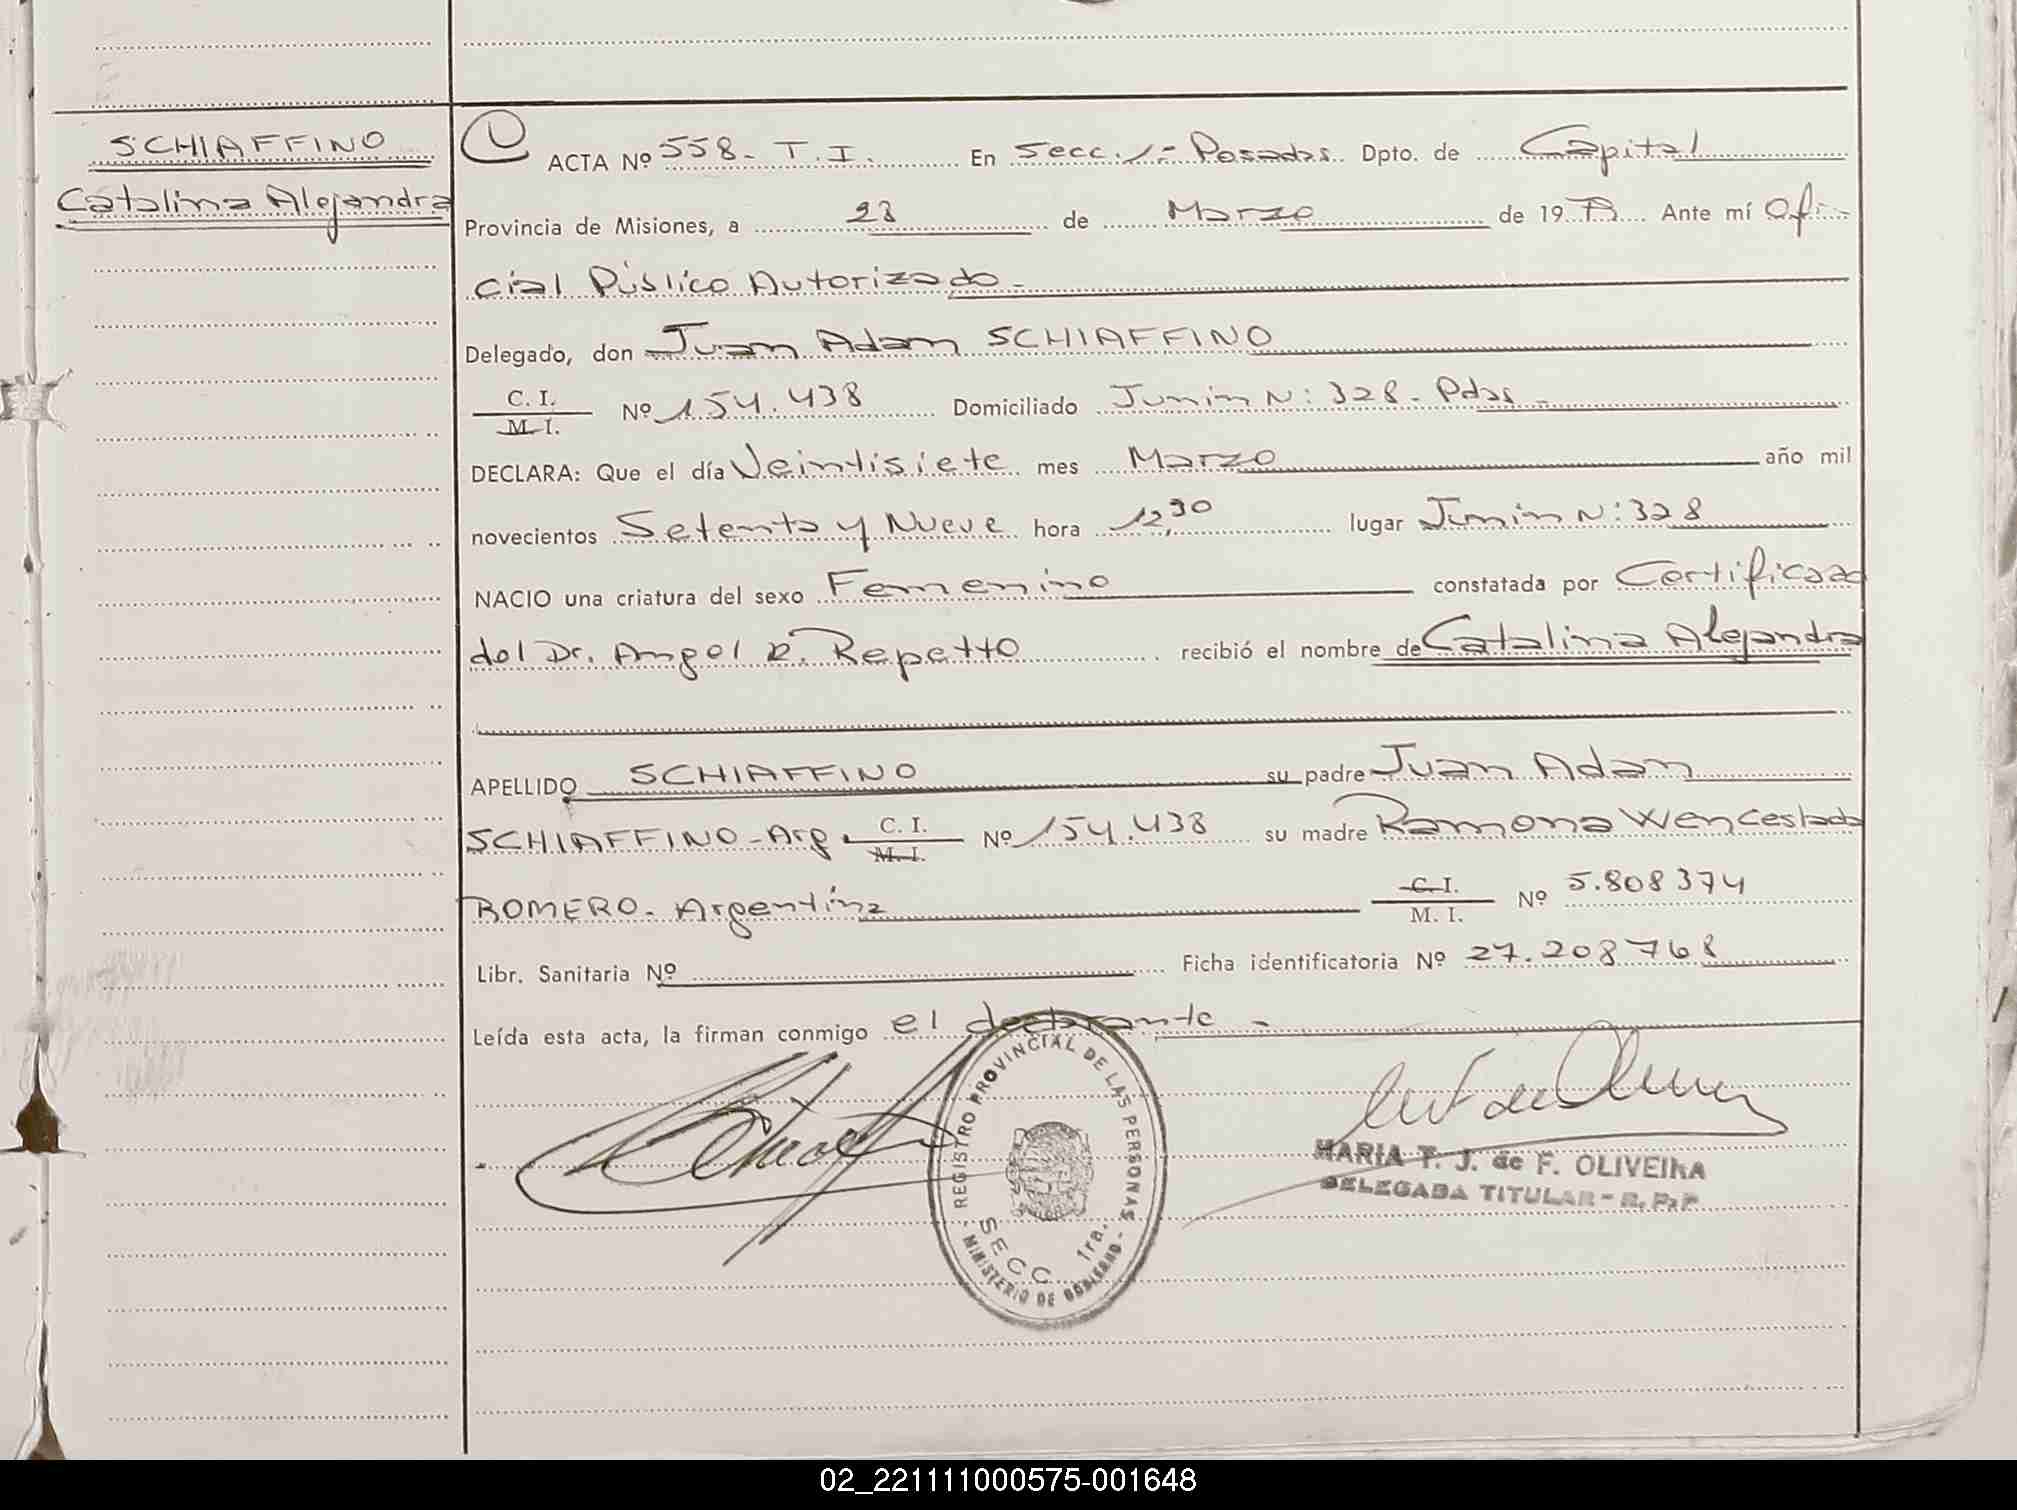 SCHIAFFINO
Catalina Alejandra
ACTA Nº 558- T.I. En Secc. 1- Posadas Dpto. de Capital
Provincia de Misiones, a 28 de Marzo de 19 79 Ante mí Ofi-
cial Público Autorizado -
Delegado, don Juan Adam SCHIAFFINO
C. I.
M. I.
Nº 154.438 Domiciliado Junin N: 328- Pdas -
DECLARA: Que el día Veintisiete mes Marzo año mil
novecientos Setenta y Nueve hora 12,30 lugar Junin N: 328
NACIO una criatura del sexo Femenino constatada por Certificado
del Dr. Angel R. Repetto recibió el nombre de Catalina Alejandra
APELLIDO SCHIAFFINO su padre Juan Adam
SCHIAFFINO-Arg C. I. Nº 154.438 su madre Ramona Wenceslada
M. I.
ROMERO- Argentina C. I. Nº 5.808374
M. I.
Libr. Sanitaria Nº Ficha identificatoria Nº 27.208768
Leída esta acta, la firman conmigo el declarante -
REGISTRO PROVINCIAL DE LAS PERSONAS
SECC 1ra.
MINISTERIO DE GOBIERNO
MARIA T. J. de F. OLIVEIRA
DELEGADA TITULAR - R. P. P
02_221111000575-001648